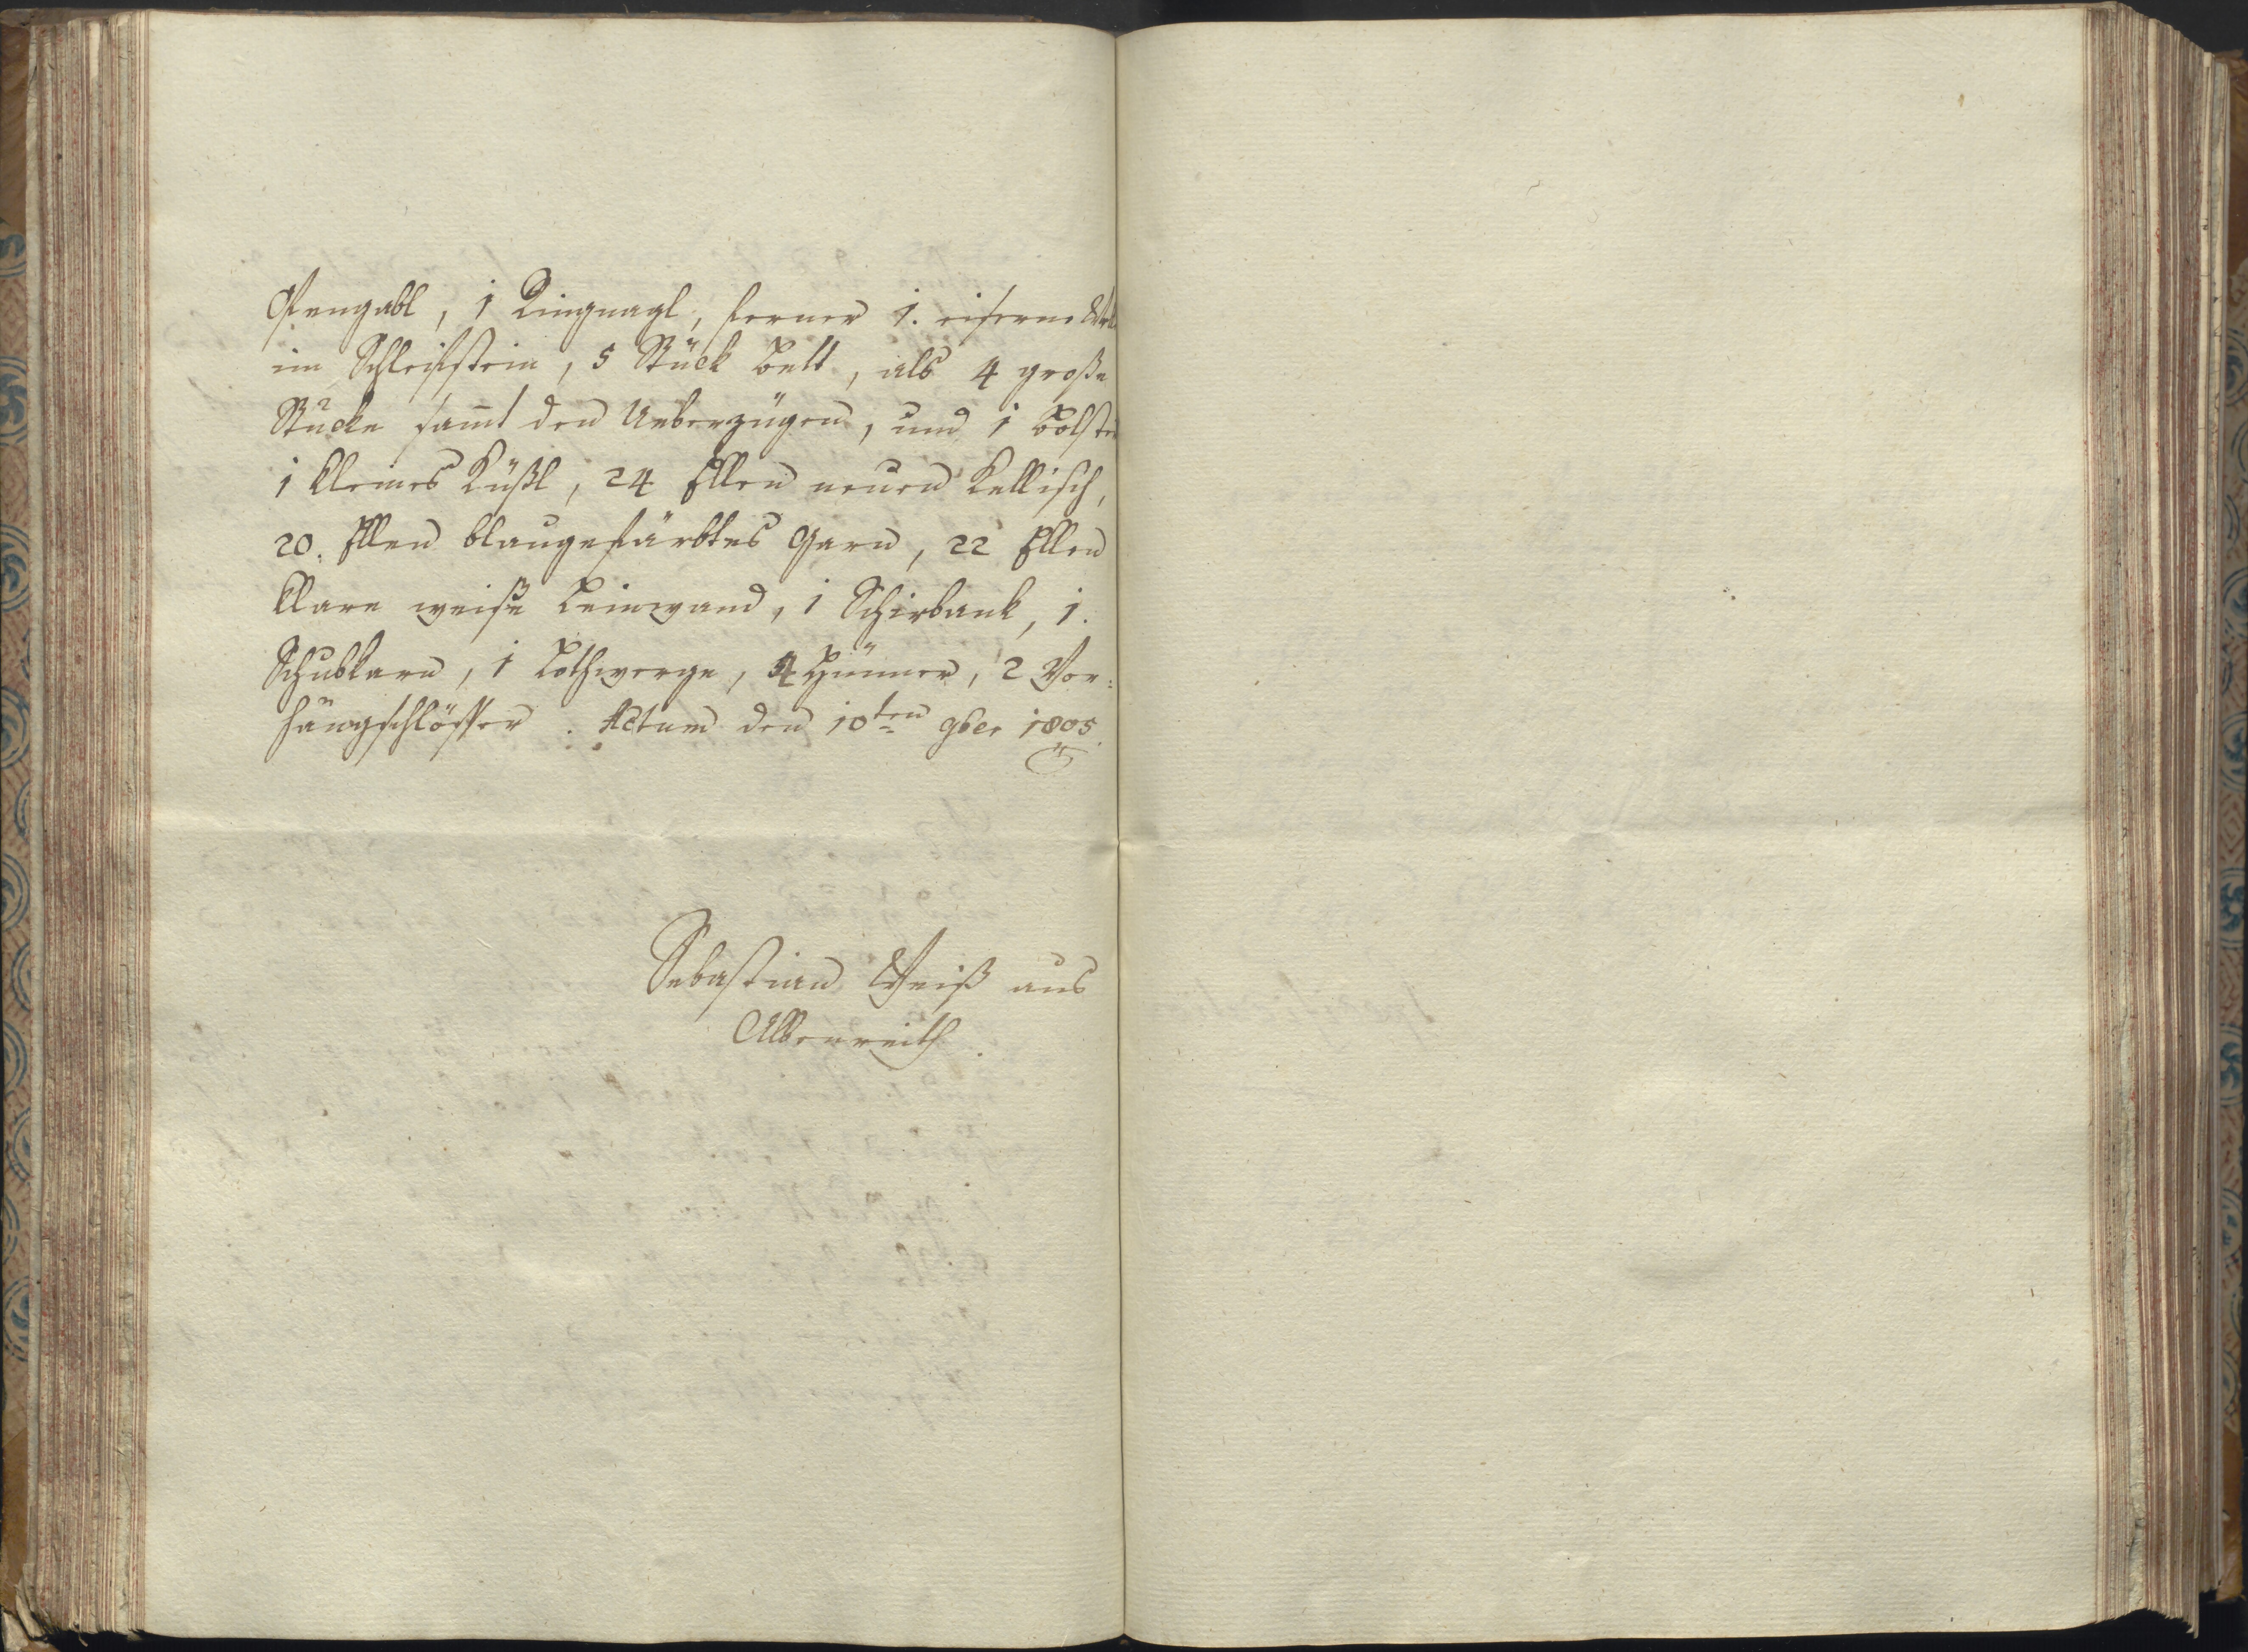 Ofengabl, 1 Ringnagl, ferner 1. eiserne
im Schleifstein, 5 Stück Bett, als 4 große
Stücke samt den Ueberzügen, und 1 Polster
1 kleines Küßl, 24 Ellen neuen Kellisch,
20. Ellen blaugefärbtes Garn, 22 Ellen
klare weiße Leinwand, 1 Schirbank, 1.
Schubkarn, 1 Kothwerge, 4 Hünner, 2 Vor:
hängschlösser. Actum den 10ten 9ber 1805.
Sebastian Weiß aus
Albenreith.